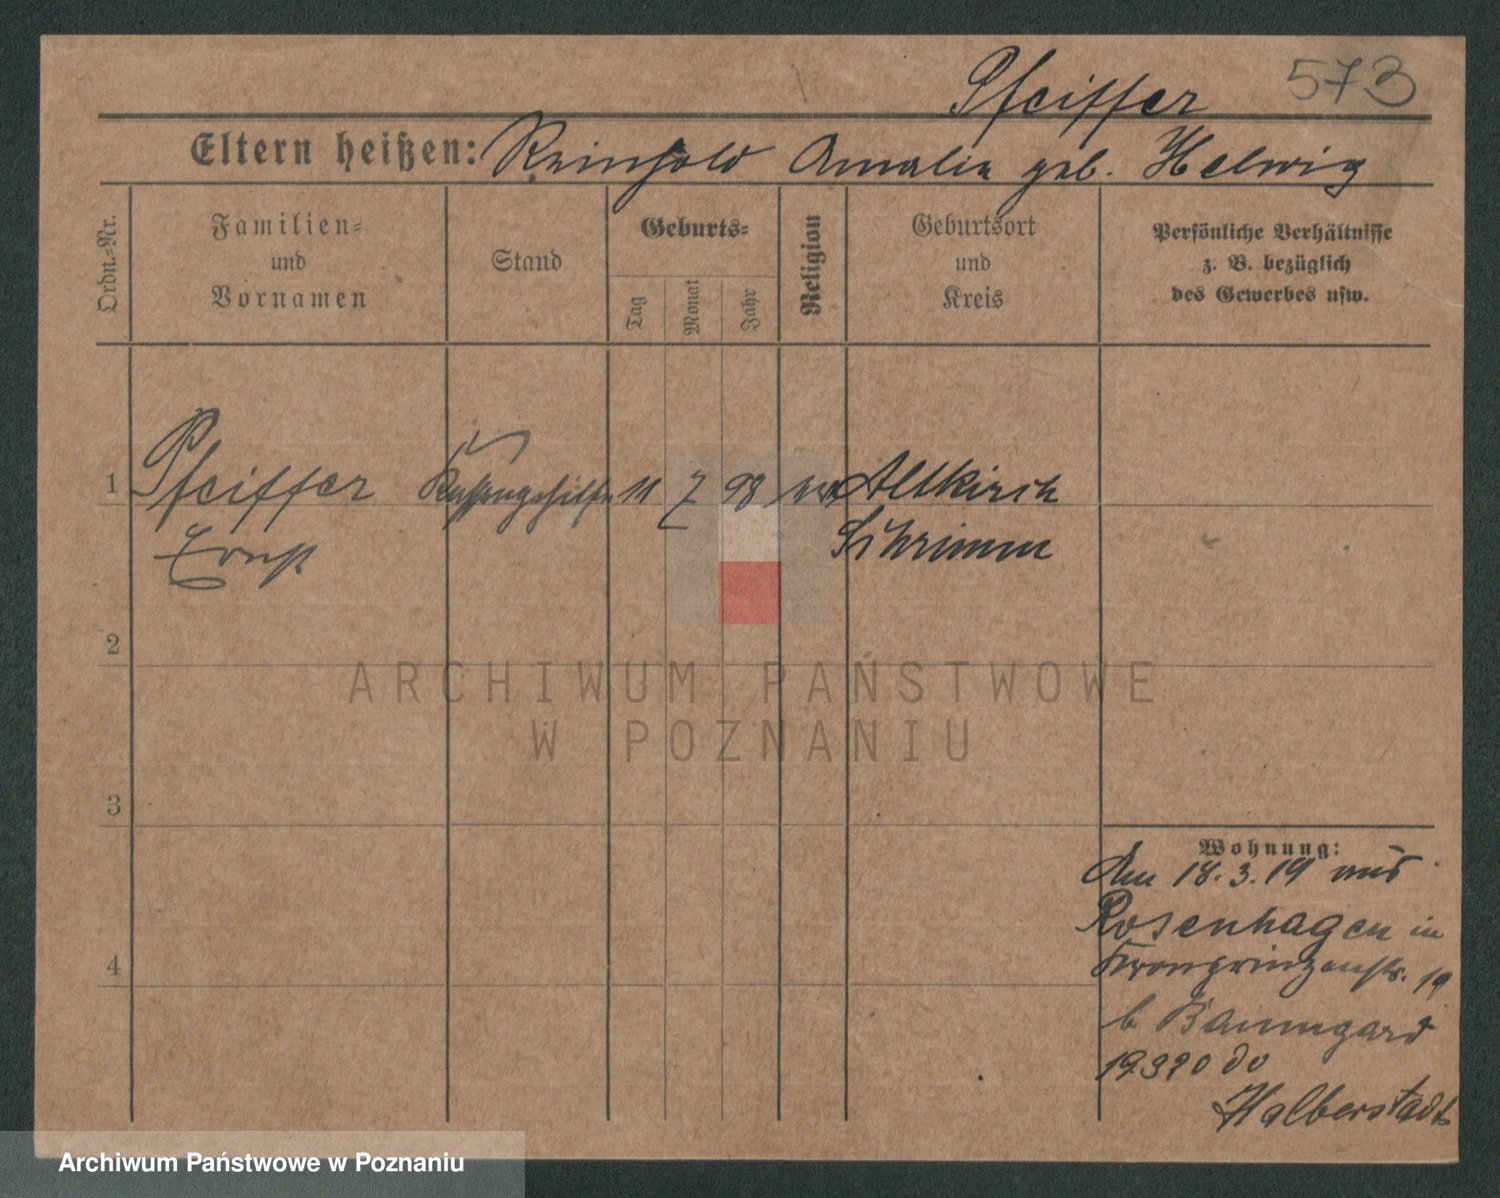 Pfeiffer 573
Eltern heißen: Reinhold Amalie geb. Helwig
Ordn.-Nr.
Familien- und Vornamen
Stand
Geburts-
Tag
Monat
Jahr
Religion
Geburtsort und Kreis
Persönliche Verhältnisse z. B. bezüglich des Gewerbes usw.
1 Pfeiffer 11 7 98 Altkirch
Ernst Schrimm
2
ARCHIWUM PAŃSTWOWE
W POZNANIU
3
Wohnung:
Am 18.3.19 aus
Rosenhagen in
4
Kronprinzenstr. 19
b Baumgard
19320 do
Halberstadt
Archiwum Państwowe w Poznaniu